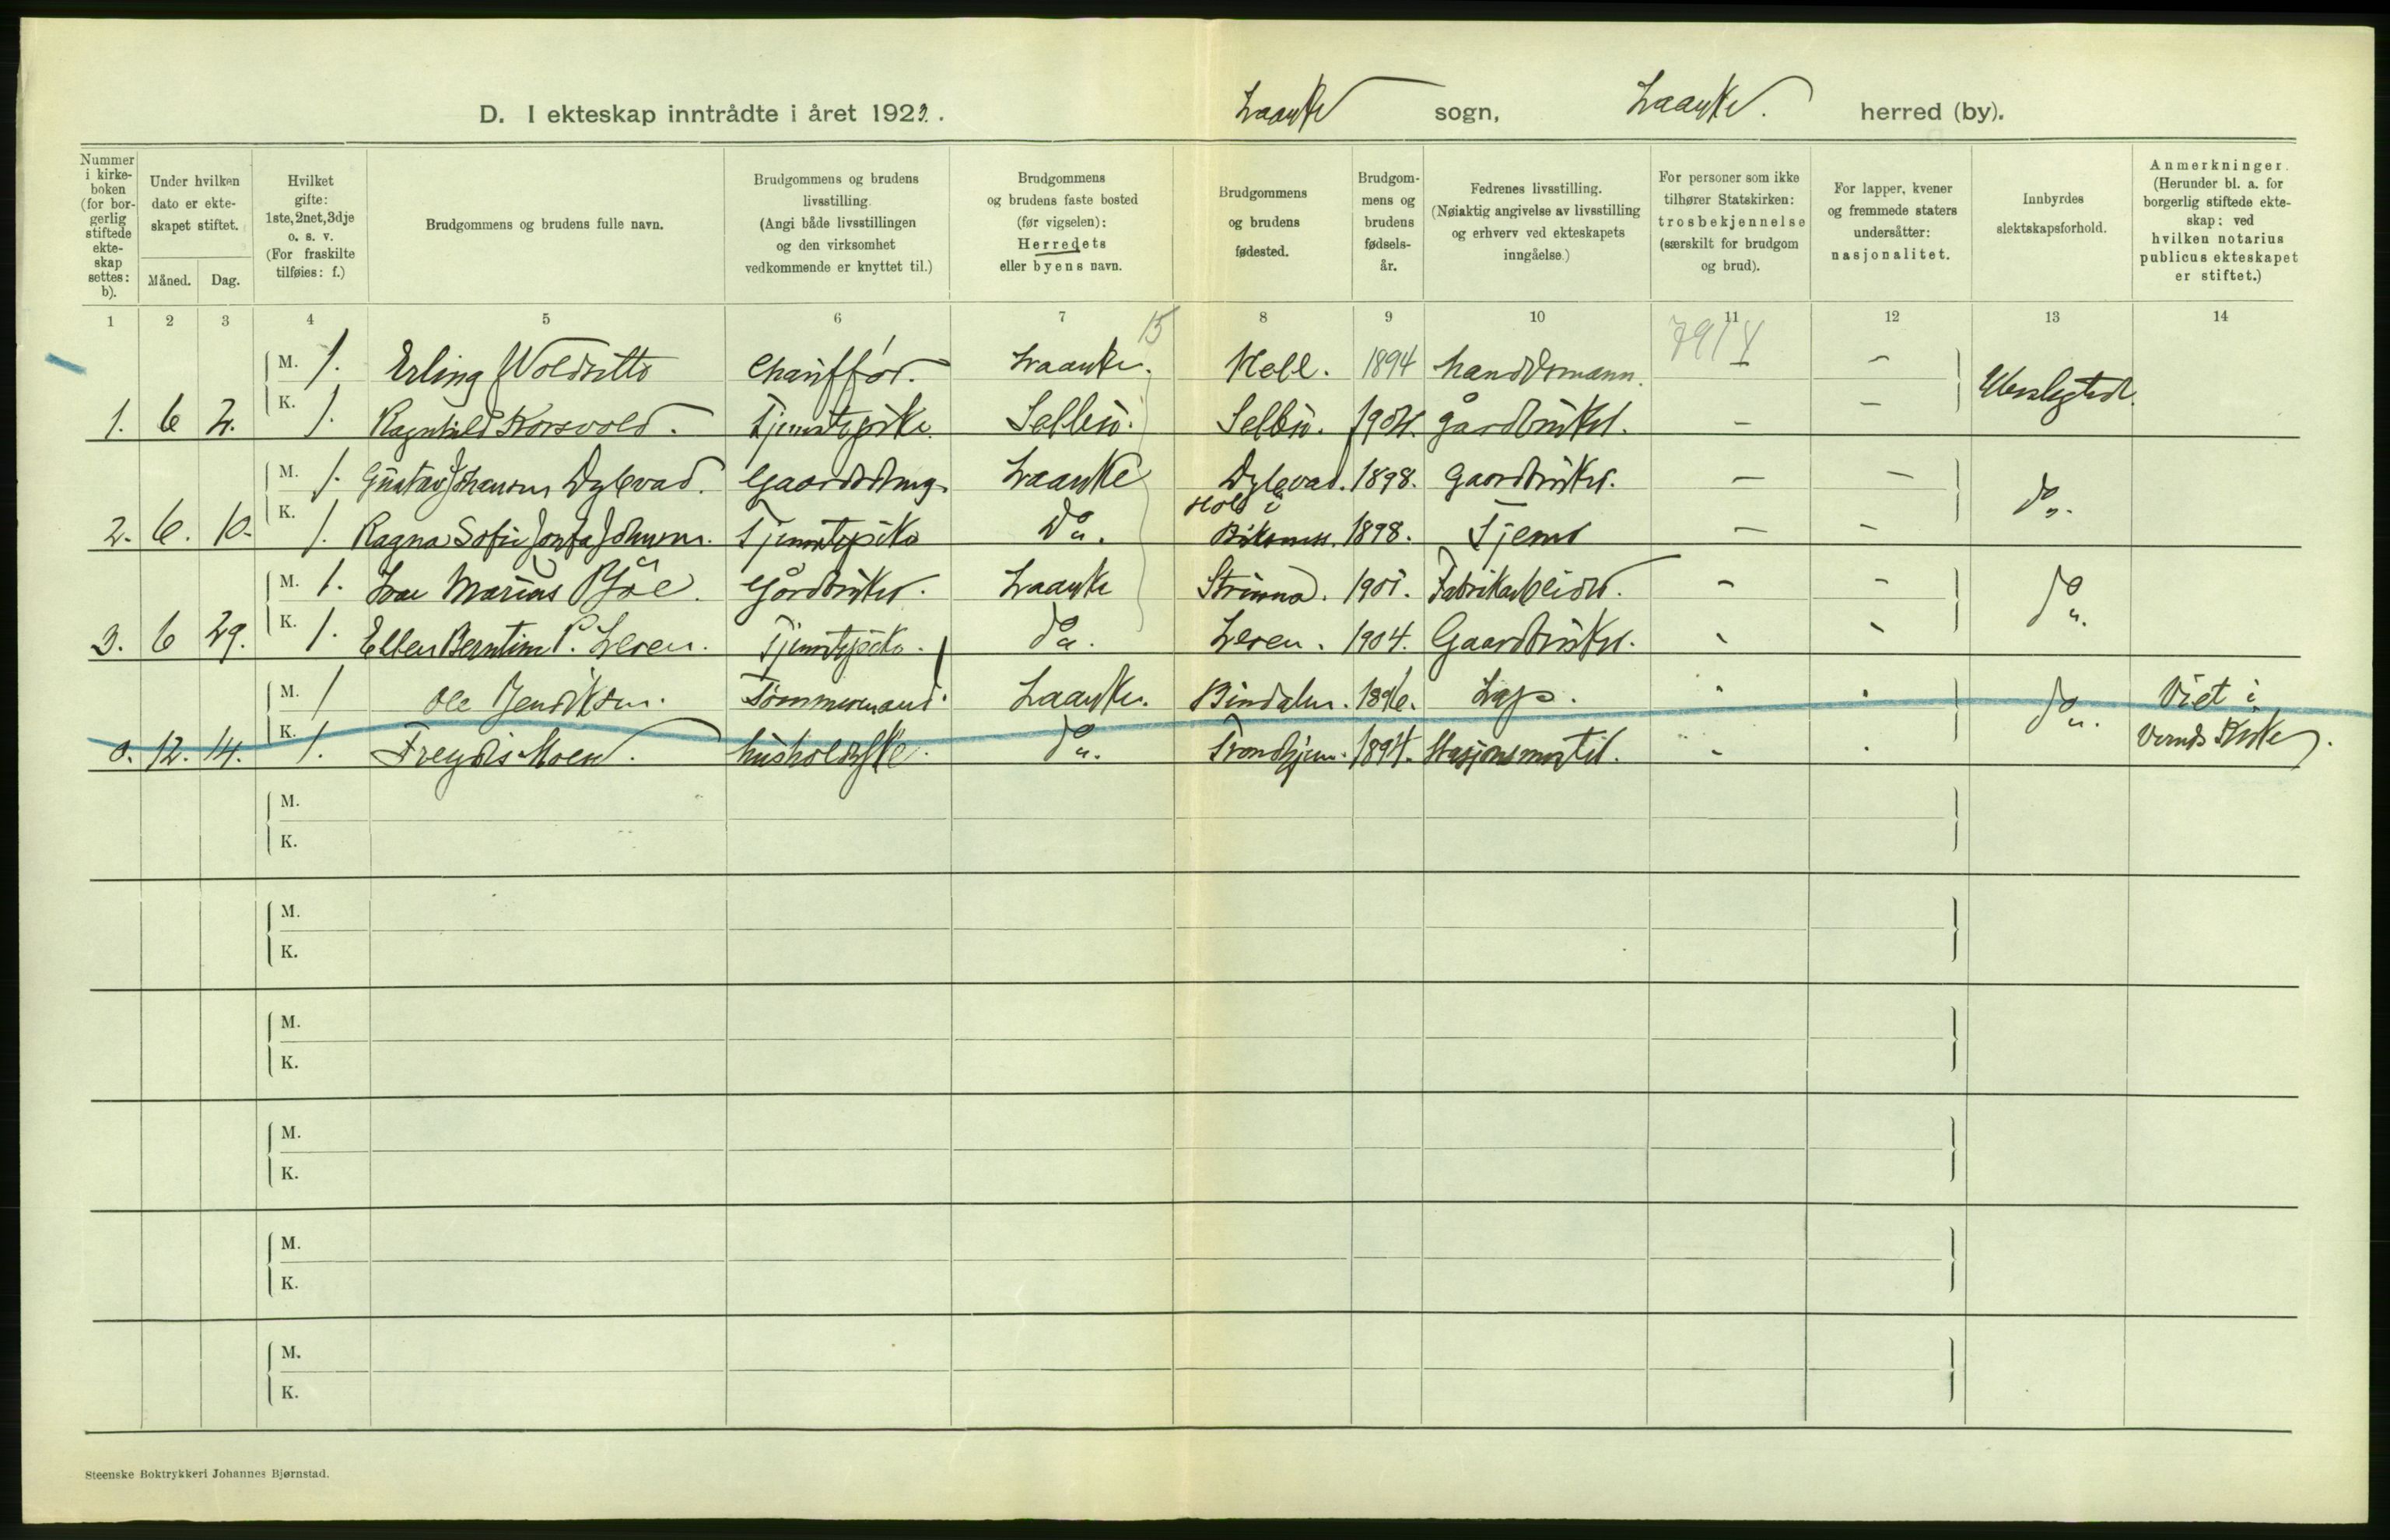 D. I ekteskap inntrådte i året 1923. Laanke sogn, Laanke. herred (by).
Nummer i kirkeboken (for borgerlig stiftede ekteskap settes: b).
Under hvilken dato er ekteskapet stiftet.
Måned. Dag.
Hvilket gifte: 1ste, 2net, 3dje o. s. v. (For fraskilte tilføies: f.)
Brudgommens og brudens fulle navn.
Brudgommens og brudens livsstilling. (Angi både livsstillingen og den virksomhet vedkommende er knyttet til.)
Brudgommens og brudens faste bosted (før vigselen): Herredets eller byens navn.
Brudgommens og brudens fødested.
Brudgommens og brudens fødselsår.
Fedrenes livsstilling. (Nøiaktig angivelse av livsstilling og erhverv ved ekteskapets inngåelse.)
For personer som ikke tilhører Statskirken: trosbekjennelse (særskilt for brudgom og brud).
For lapper, kvener og fremmede staters undersåtter: nasjonalitet.
Innbyrdes slektskapsforhold.
Anmerkninger. (Herunder bl. a. for borgerlig stiftede ekteskap: ved hvilken notarius publicus ekteskapet er stiftet.)
1 2 3 4 5 6 7 8 9 10 11 12 13 14
15
M. 1. Erling Woldseth Chauffør. Laanke. Hell. 1894 - -
1. 6 2. K. 1. Ragnhild Korsvold. Tjenestepike. Selbu. Selbu. 1904. gårdbruker. - - Ubeslegtet.
M. 1. Gustav Johansen Dybvad. Laanke Dybvad. 1898. Gaardbruker. - -
2. 6. 10. K. 1. Ragna Sofie Johansen. Tjenestepike Do. Hold i 1898. - - Do.
M. 1. Marius Gårdbruker. Laanke Strinna. 1901. Fabrikarbeider. - -
3. 6 29. K. 1. Ellen Berntine P. Leren. Tjenestepike. do. Leren. 1904. Gaardbruker. - - do.
M. 1 Ole Bendiksen. Tømmermand. Laanke. Bindalen. 1896. Lap. - - Viet i
0. 12. 14. K. 1. Frøydis Moen. husholdske. do. Trondhjem. 1894. Stasjonsmester. - - do. Værnes Kirke.
M.
K.
M.
K.
M.
K.
M.
K.
M.
K.
M.
K.
Steenske Boktrykkeri Johannes Bjørnstad.